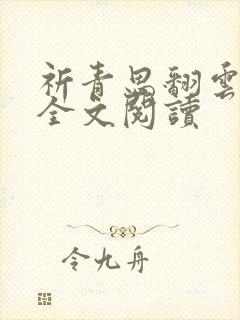 祈青思翻雲
全文閱讀
令九舟